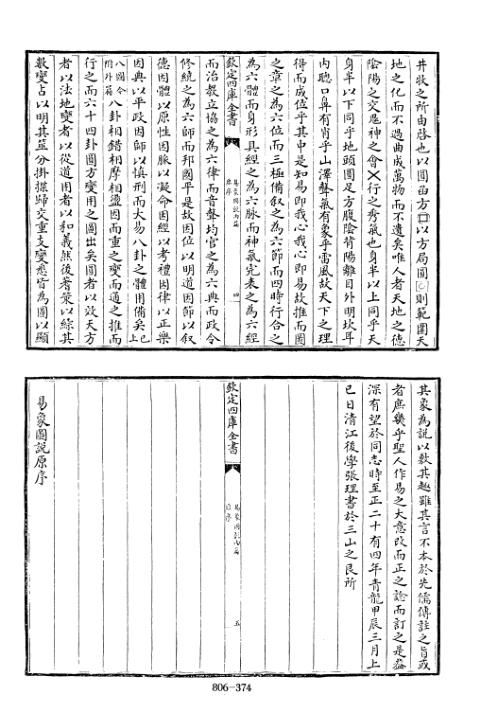 井牧之所由啓也以圓函方囗以方局圓〇則範圍天
地之化而不過曲成萬物而不遺矣唯人者天地之德
陰陽之交鬼神之會㐅行之秀氣也身半以上同乎天
身半以下同乎地頭圓足方腹陰背陽離目外明坎耳
内聰口鼻有肖乎山澤聲氣有象乎雷風故天下之理
得而成位乎其中是知易即我心我心即易故推而圖
之章之為六位而三極備叙之為六節而四時行合之
為六體而身形具經之為六脉而神氣完表之為六經
欽定四庫全書
易象圖説内篇
原序
四
而治教立協之為六律而音聲均官之為六典而政令
修統之為六師而邦國平是故因位以明道因節以叙
德因體以原性因脉以凝命因經以考禮因律以正樂
因典以平政因師以慎刑而大易八卦之體用備矣已上
八圖今附外篇八卦相錯相摩相盪因而重之變而通之推而
行之而六十四卦圓方變用之圖出矣圓者以效天方
者以法地變者以從道用者以和義然後蓍策以綜其
數變占以明其筮分掛揲歸交重支變悉皆為圖以顯
其象為説以敷其趣雖其言不本於先儒傳註之旨或
者庶幾乎聖人作易之大意改而正之諗而訂之是蓋
深有望於同志時至正二十有四年青龍甲辰三月上
巳日清江後學張理書於三山之艮所
欽定四庫全書
易象圖説内篇
原序
五
易象圖説原序
806-374